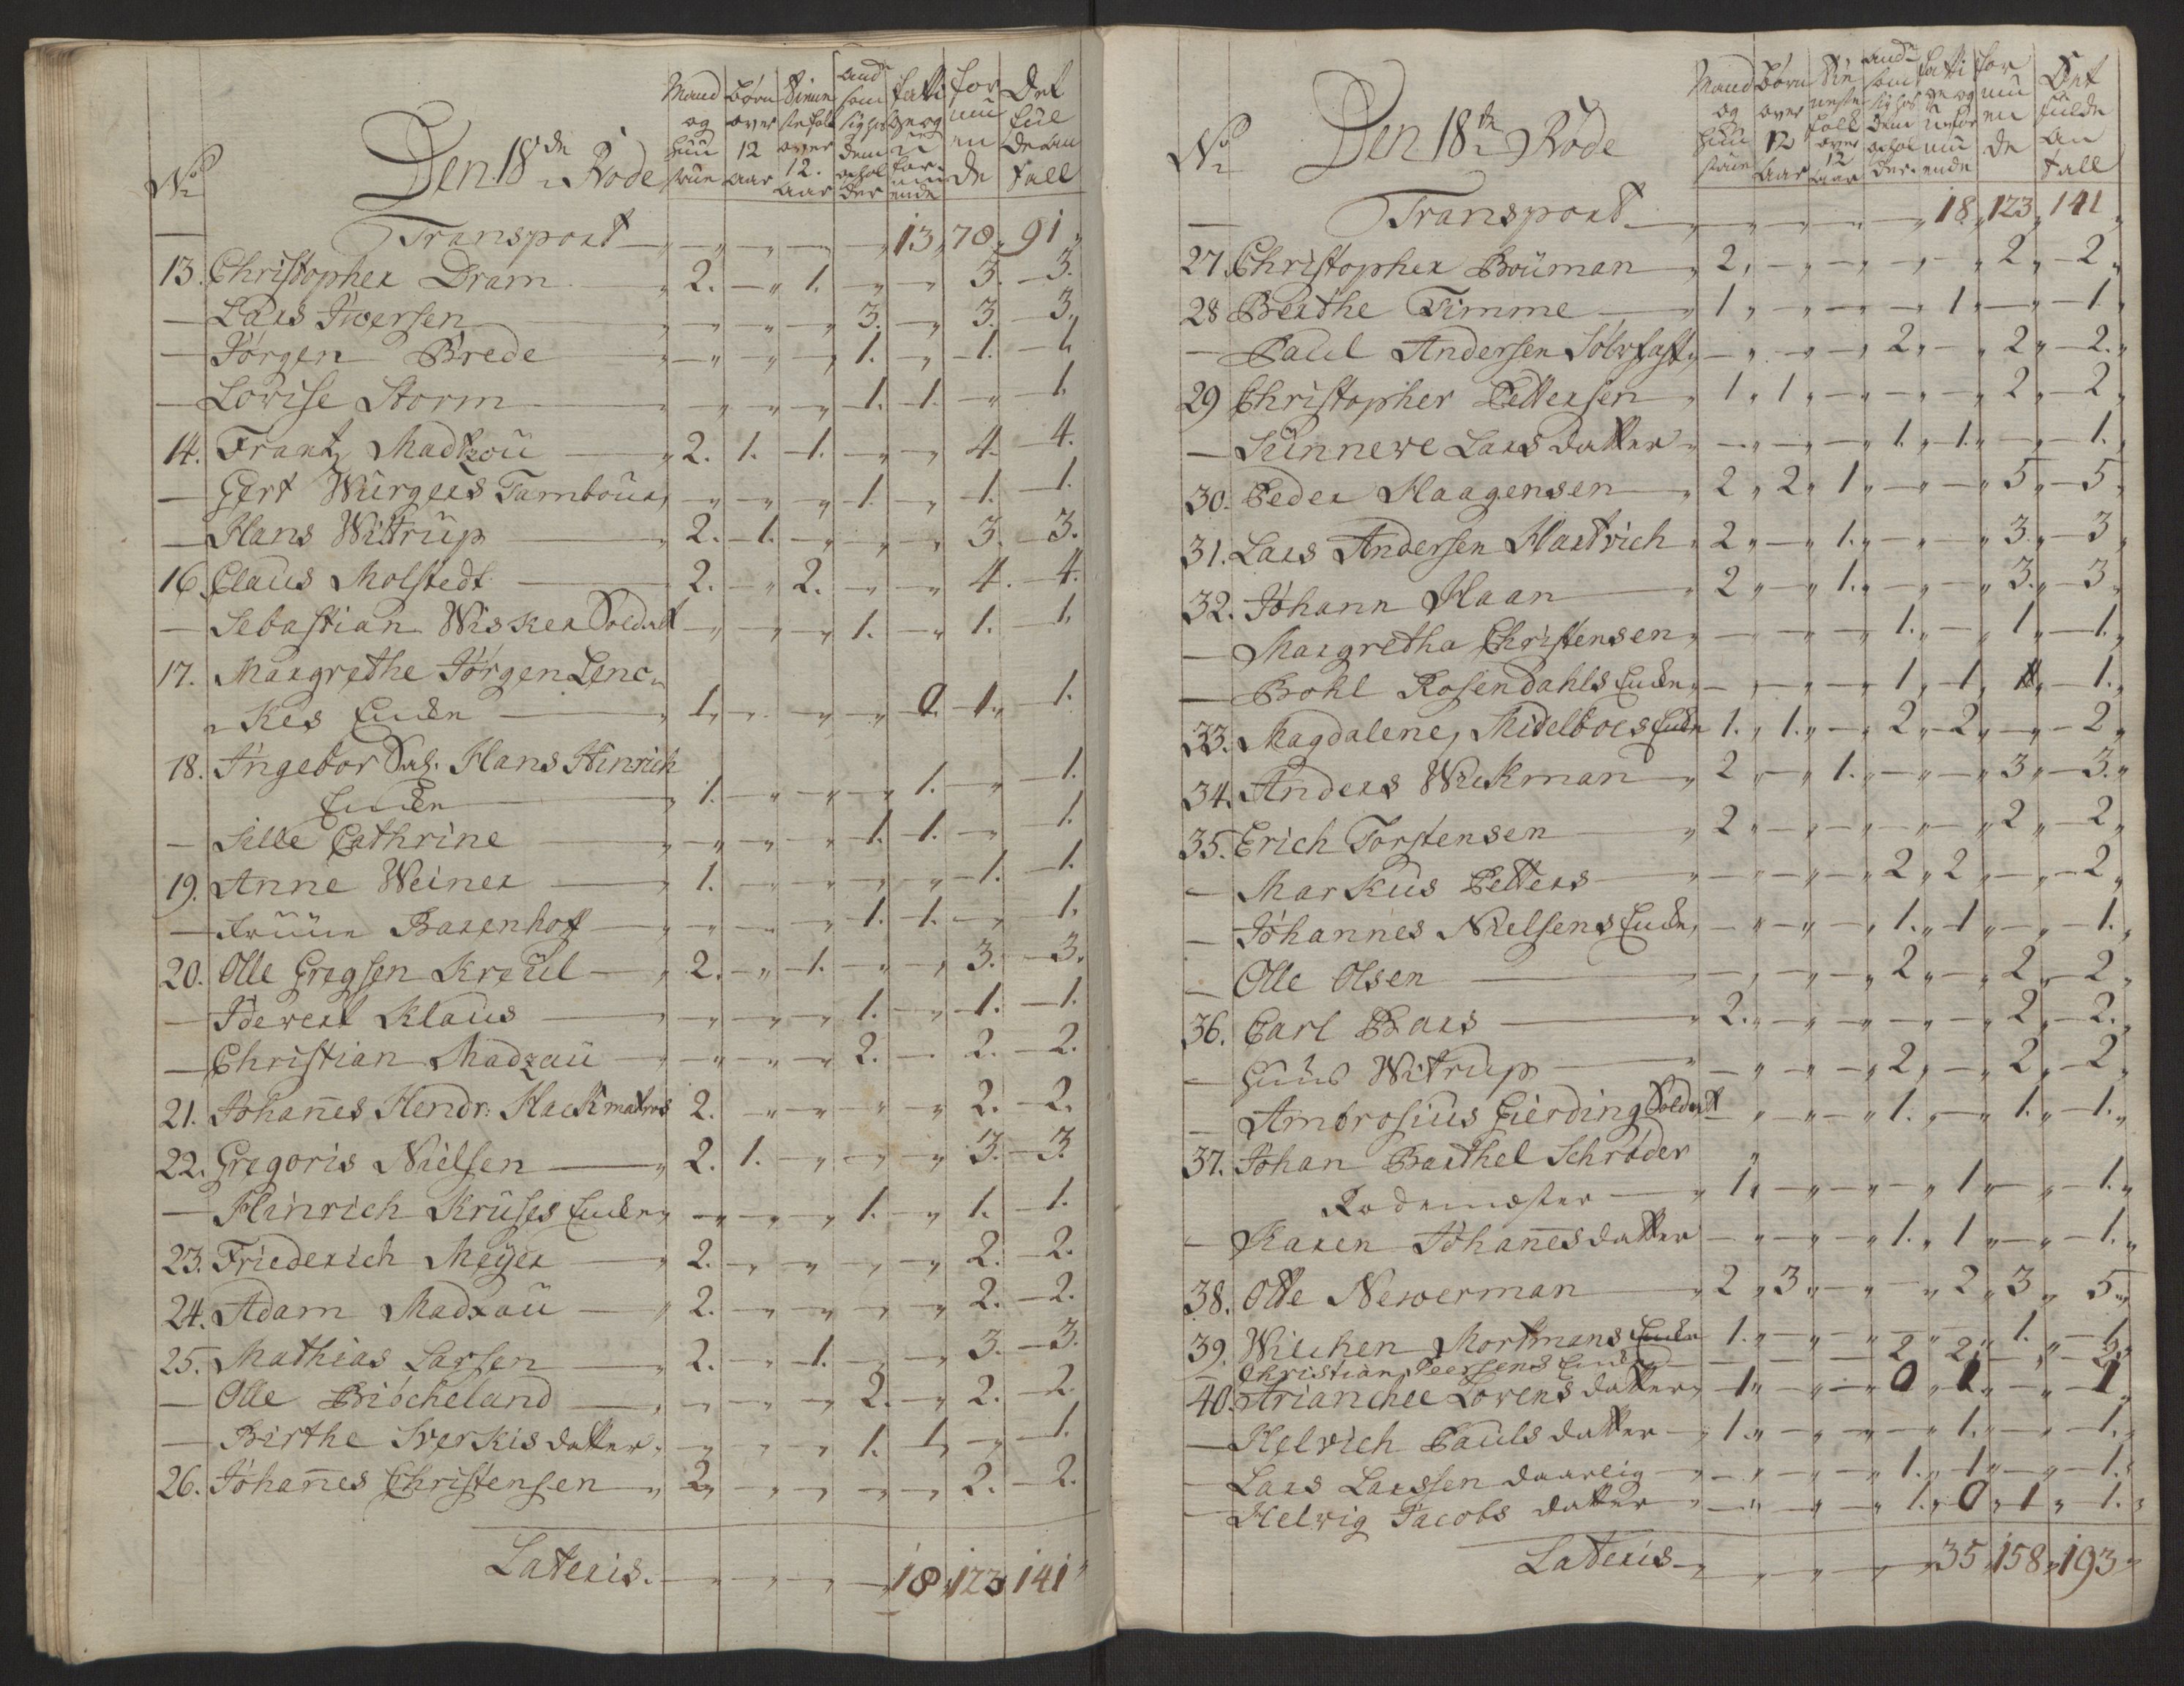 No
Den 18de Rode
Mand og Hustrue
Børn over 12 aar
Tienneste folk over 12. aar
Andre som sig hos dem ophol der
Fatti ge og U for mu ende
For mu en de
Det fulde An tall
Transport - - - - - 13 78 91
13. Christopher Dram 2. - 1. - - 3. 3.
- Lars Iwersen - - - 3. - 3. 3.
- Jörgen Brede - - - 1. - 1. 1.
- Lovise Storm - - - 1. 1. - 1.
14. Frantz Madtzou 2. 1. 1. - - 4. 4.
- Gert Würgers Tambour - - - 1. - 1. 1.
- Hans Wittrup 2. 1. - - - 3. 3.
16. Claus Molstedt 2. - 2. - - 4. 4.
- Sebastian Wisker Soldat - - - 1. - 1. 1.
17. Margrethe Jörgen Lenc-
kes Enke 1. - - - 0 1. 1.
18. Ingebor Sal. Hans Hinrich
Enke 1. - - - 1. - 1.
- Sille Cathrine - - - 1. 1. - 1.
19. Anne Weiner 1. - - - - 1. 1.
- Barenhoff - - - 1. 1. - 1.
20. Olle Gregsen Kreül 2. - 1. - - 3. 3.
- Klaus - - - 1. - 1. 1.
- Christian Madzau - - - 2. - 2. 2.
21. Johañes Hendr: Hackmakers 2. - - - - 2. 2.
22. Gregoris Nielsen 2. 1. - - - 3. 3.
- Hinrich Kruses Enke - - - 1. - 1. 1.
23. Friederich Meyer 2. - - - - 2. 2.
24. Adam Madzau 2. - - - - 2. 2.
25. Mathias Larsen 2. - 1. - - 3. 3.
- Olle Biöcheland - - - 2. - 2. 2.
- Birthe Sverkis datter - - - 1. 1. - 1.
26. Johañes Christensen 2 - - - - 2. 2.
Lateris. - - - - 18 123 141
No
Den 18de Rode
Mand og Hustrue
Børn over 12 Aar
Tienneste folk over 12 aar
Andre som sig hos dem ophol der
Fatti ge og U for mu ende
For mu en de
Det fulde An tall
Transport - - - - 18 123 141
27. Christopher Bouman 2 - - - - 2 2
28 Berthe Timme 1 - - - 1 - 1.
- Paul Andersen Sölvfast - - - 2 - 2 2.
29 Christopher Pettersen 1 1 - - - 2 2
- Sünnewe Lars datter - - - 1. 1. - 1.
30. Peder Haagensen 2 2 1 - - 5 5
31. Lars Andersen Hartvich 2 - 1. - - 3. 3
32. Johann Haan 2 - 1. - - 3. 3
- Margretha Christensen - - - 1. - 1 1.
- Bohl Rosendahls Enke - - - 1 1 1.
33. Magdalene, Midelboes Enke 1. 1. - 2 2 - 2
34. Anders Wickman 2 - 1. - - 3 3.
35. Erich Torstensen 2 - - - - 2 2
- Markus Petters - - - 2 2 - 2
- Johannes Nielsens Enke - - - 1. 1 - 1.
- Olle Olsen - - - 2 - 2 2
36. Carl Bars 2. - - - - 2 2.
- Witrup - - - 2 - 2 2
- Ambrosius Gierding Soldat - - - 1. - 1. 1.
37. Johan Barthel Schröder
Rodemester 1 - - - 1 - 1.
- Karen Johañesdatter - - - 1. 1 - 1.
38. Otte Newerman 2 3 - - 2 3 5
39. Wilchen Mortmans Enke 1. - - - - 1. 1
- Christian Peersens Enke - - - 2 2 - 2
40. Arianchee Lorens datter 1 - - 0 1 - 1
- Helvich Pauls datter 1. - - - 1. - 1.
- Lars Larssen daarlig - - - 1. 1 - 1.
- Helvig Jacobs datter - - - 1. 0 1 1.
Lateris - - - - 35 158 193